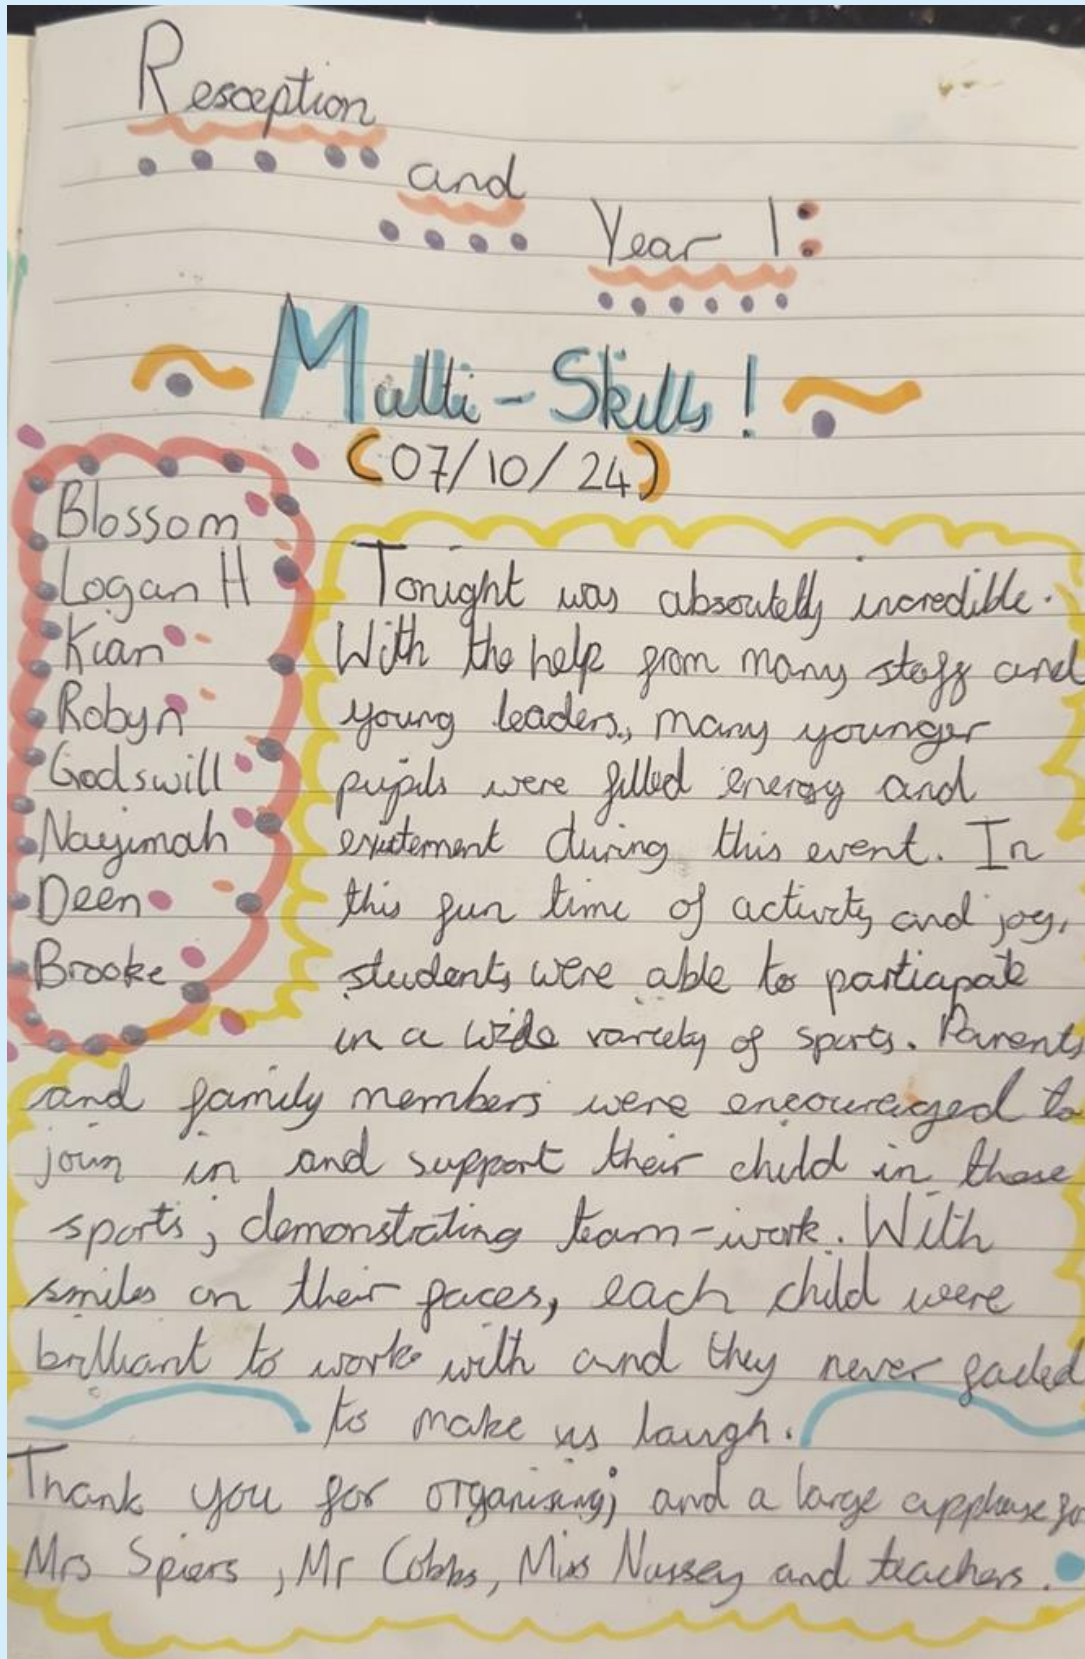 Resception
and
Year 1:
Multi-Skills!
(07/10/24)
Blossom
Logan H
Kian
Robyn
Godswill
Nayimah
Deen
Brooke
Tonight was absoutelly incredible.
With the help from many staff and
young leaders, many younger
pupils were filled energy and
exitement during this event. In
this fun time of activity and joy,
students were able to particapate
in a wide variety of sports. Parents
and family members were encouraged to
join in and support their child in these
sports; demonstrating team-work. With
smiles on their faces, each child were
brilliant to work with and they never failed
to make us laugh.
Thank you for organising; and a large applause for
Mrs Spiers, Mr Cobbs, Miss Nussey and teachers.